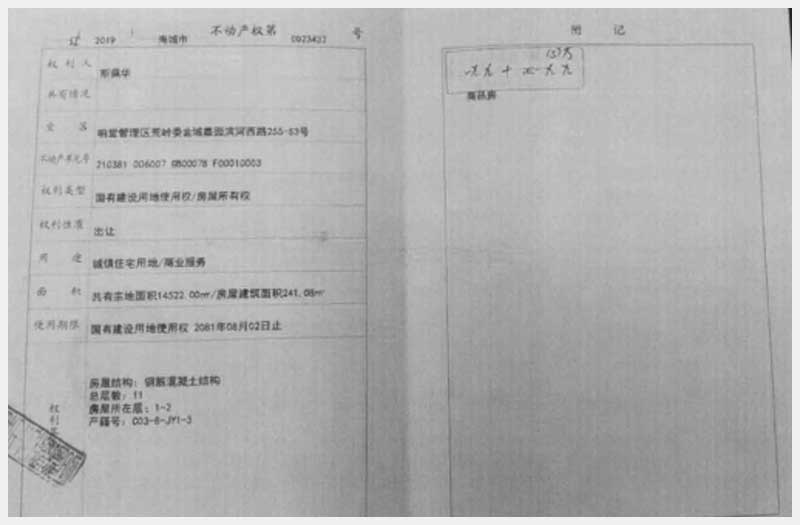 辽 2019 海城市 不动产权第 0023432 号
权利人
斯佩华
共有情况
坐落 响堂管理区荒岭委金域嘉园滨河西路255-S3号
不动产单元号 210381 006007 GB00078 F00010003
权利类型 国有建设用地使用权/房屋所有权
权利性质 出让
用途 城镇住宅用地/商业服务
面积 共有宗地面积14522.00㎡/房屋建筑面积241.08㎡
使用期限 国有建设用地使用权 2081年08月02日止
权利
房屋结构: 钢筋混凝土结构
总层数: 11
房屋所在层: 1-2
产籍号: C03-6-JY1-3
附记
商品房